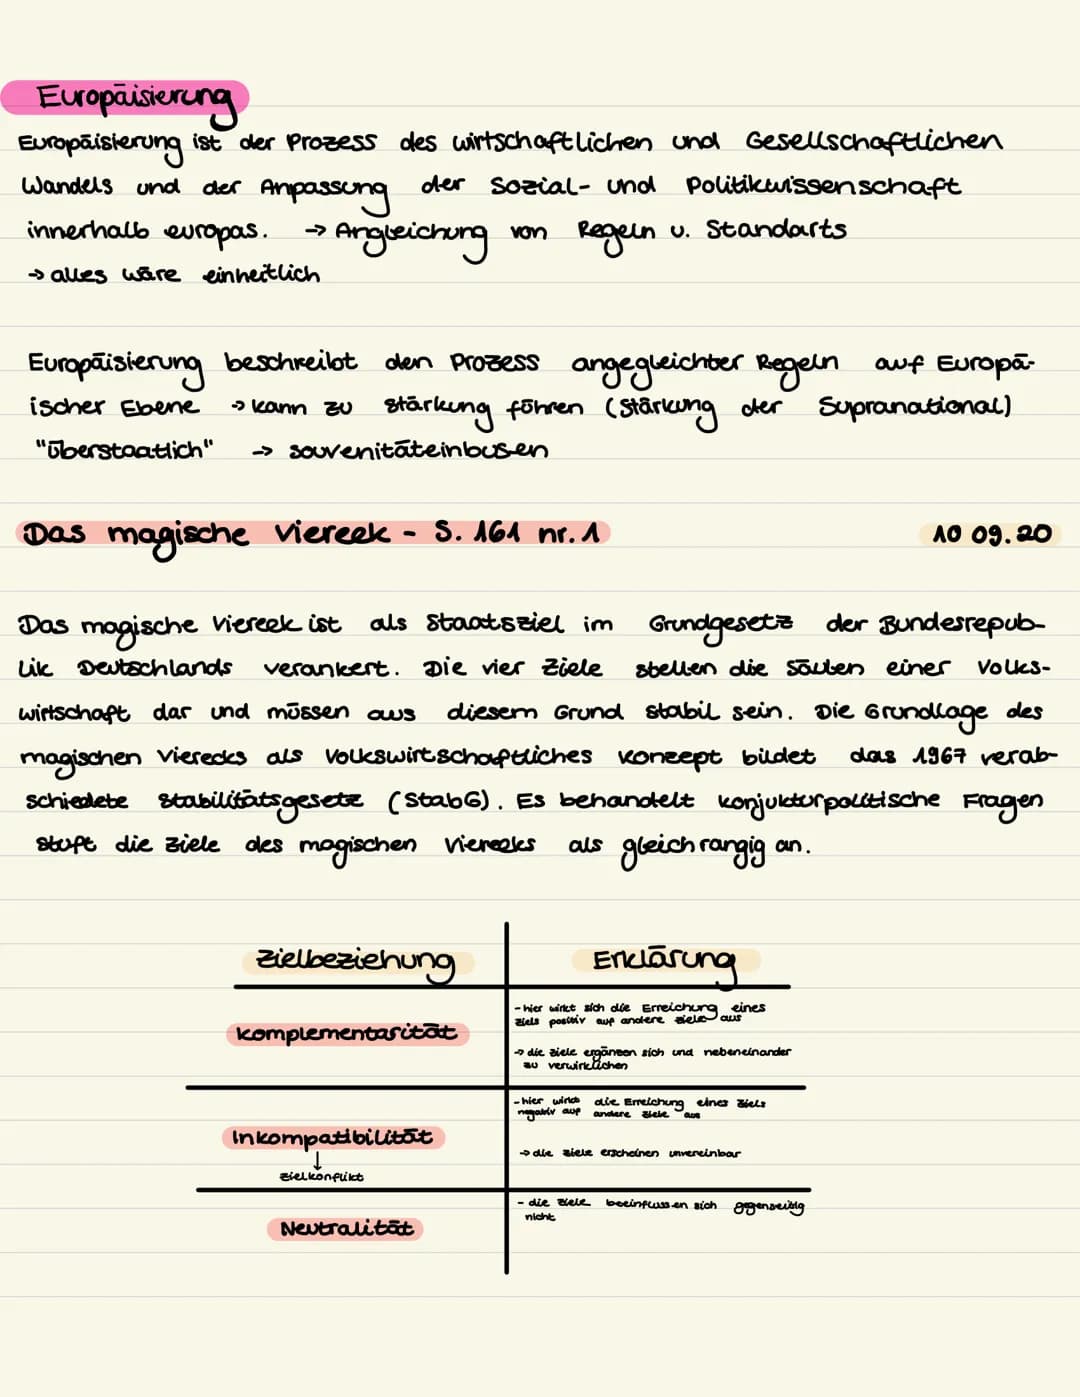 Europäisierung
Europäisierung ist der Prozess des wirtschaftlichen und Gesellschaftlichen
Wandels und der Anpassung der Sozial- und Politikwissenschaft
innerhalb europas. → Angleichung von Regeln u. Standarts
→ alles wäre einheitlich
Europäisierung beschreibt den Prozess angegleichter Regeln auf Europä-
ischer Ebene → kann zu stärkung führen (Stärkung der Supranational)
"überstaatlich" → souvenitäteinbusen
Das magische Viereck - S. 161 nr. 1 10 09. 20
Das magische Viereck ist als Staatsziel im Grundgesetz der Bundesrepub-
lik Deutschlands verankert. Die vier Ziele stellen die Säulen einer Volks-
wirtschaft dar und müssen aus diesem Grund stabil sein. Die Grundlage des
magischen Vierecks als Volkswirtschaftliches Konzept bildet das 1967 verab-
schiedete Stabilitätsgesetz (StabG). Es behandelt konjukturpolitische Fragen
stuft die Ziele des magischen Vierecks als gleichrangig an.
Zielbeziehung Erklärung
Komplementarität
- hier wirkt sich die Erreichung eines
Ziels positiv auf andere Ziele aus
→ die Ziele ergänzen sich und nebeneinander
zu verwirklichen
Inkompatibilität
↓
Zielkonflikt
- hier wirkt die Erreichung eines Ziels
negativ auf andere Ziele aus
→ die Ziele erscheinen unvereinbar
Neutralität
- die Ziele beeinflussen sich gegenseitig
nicht